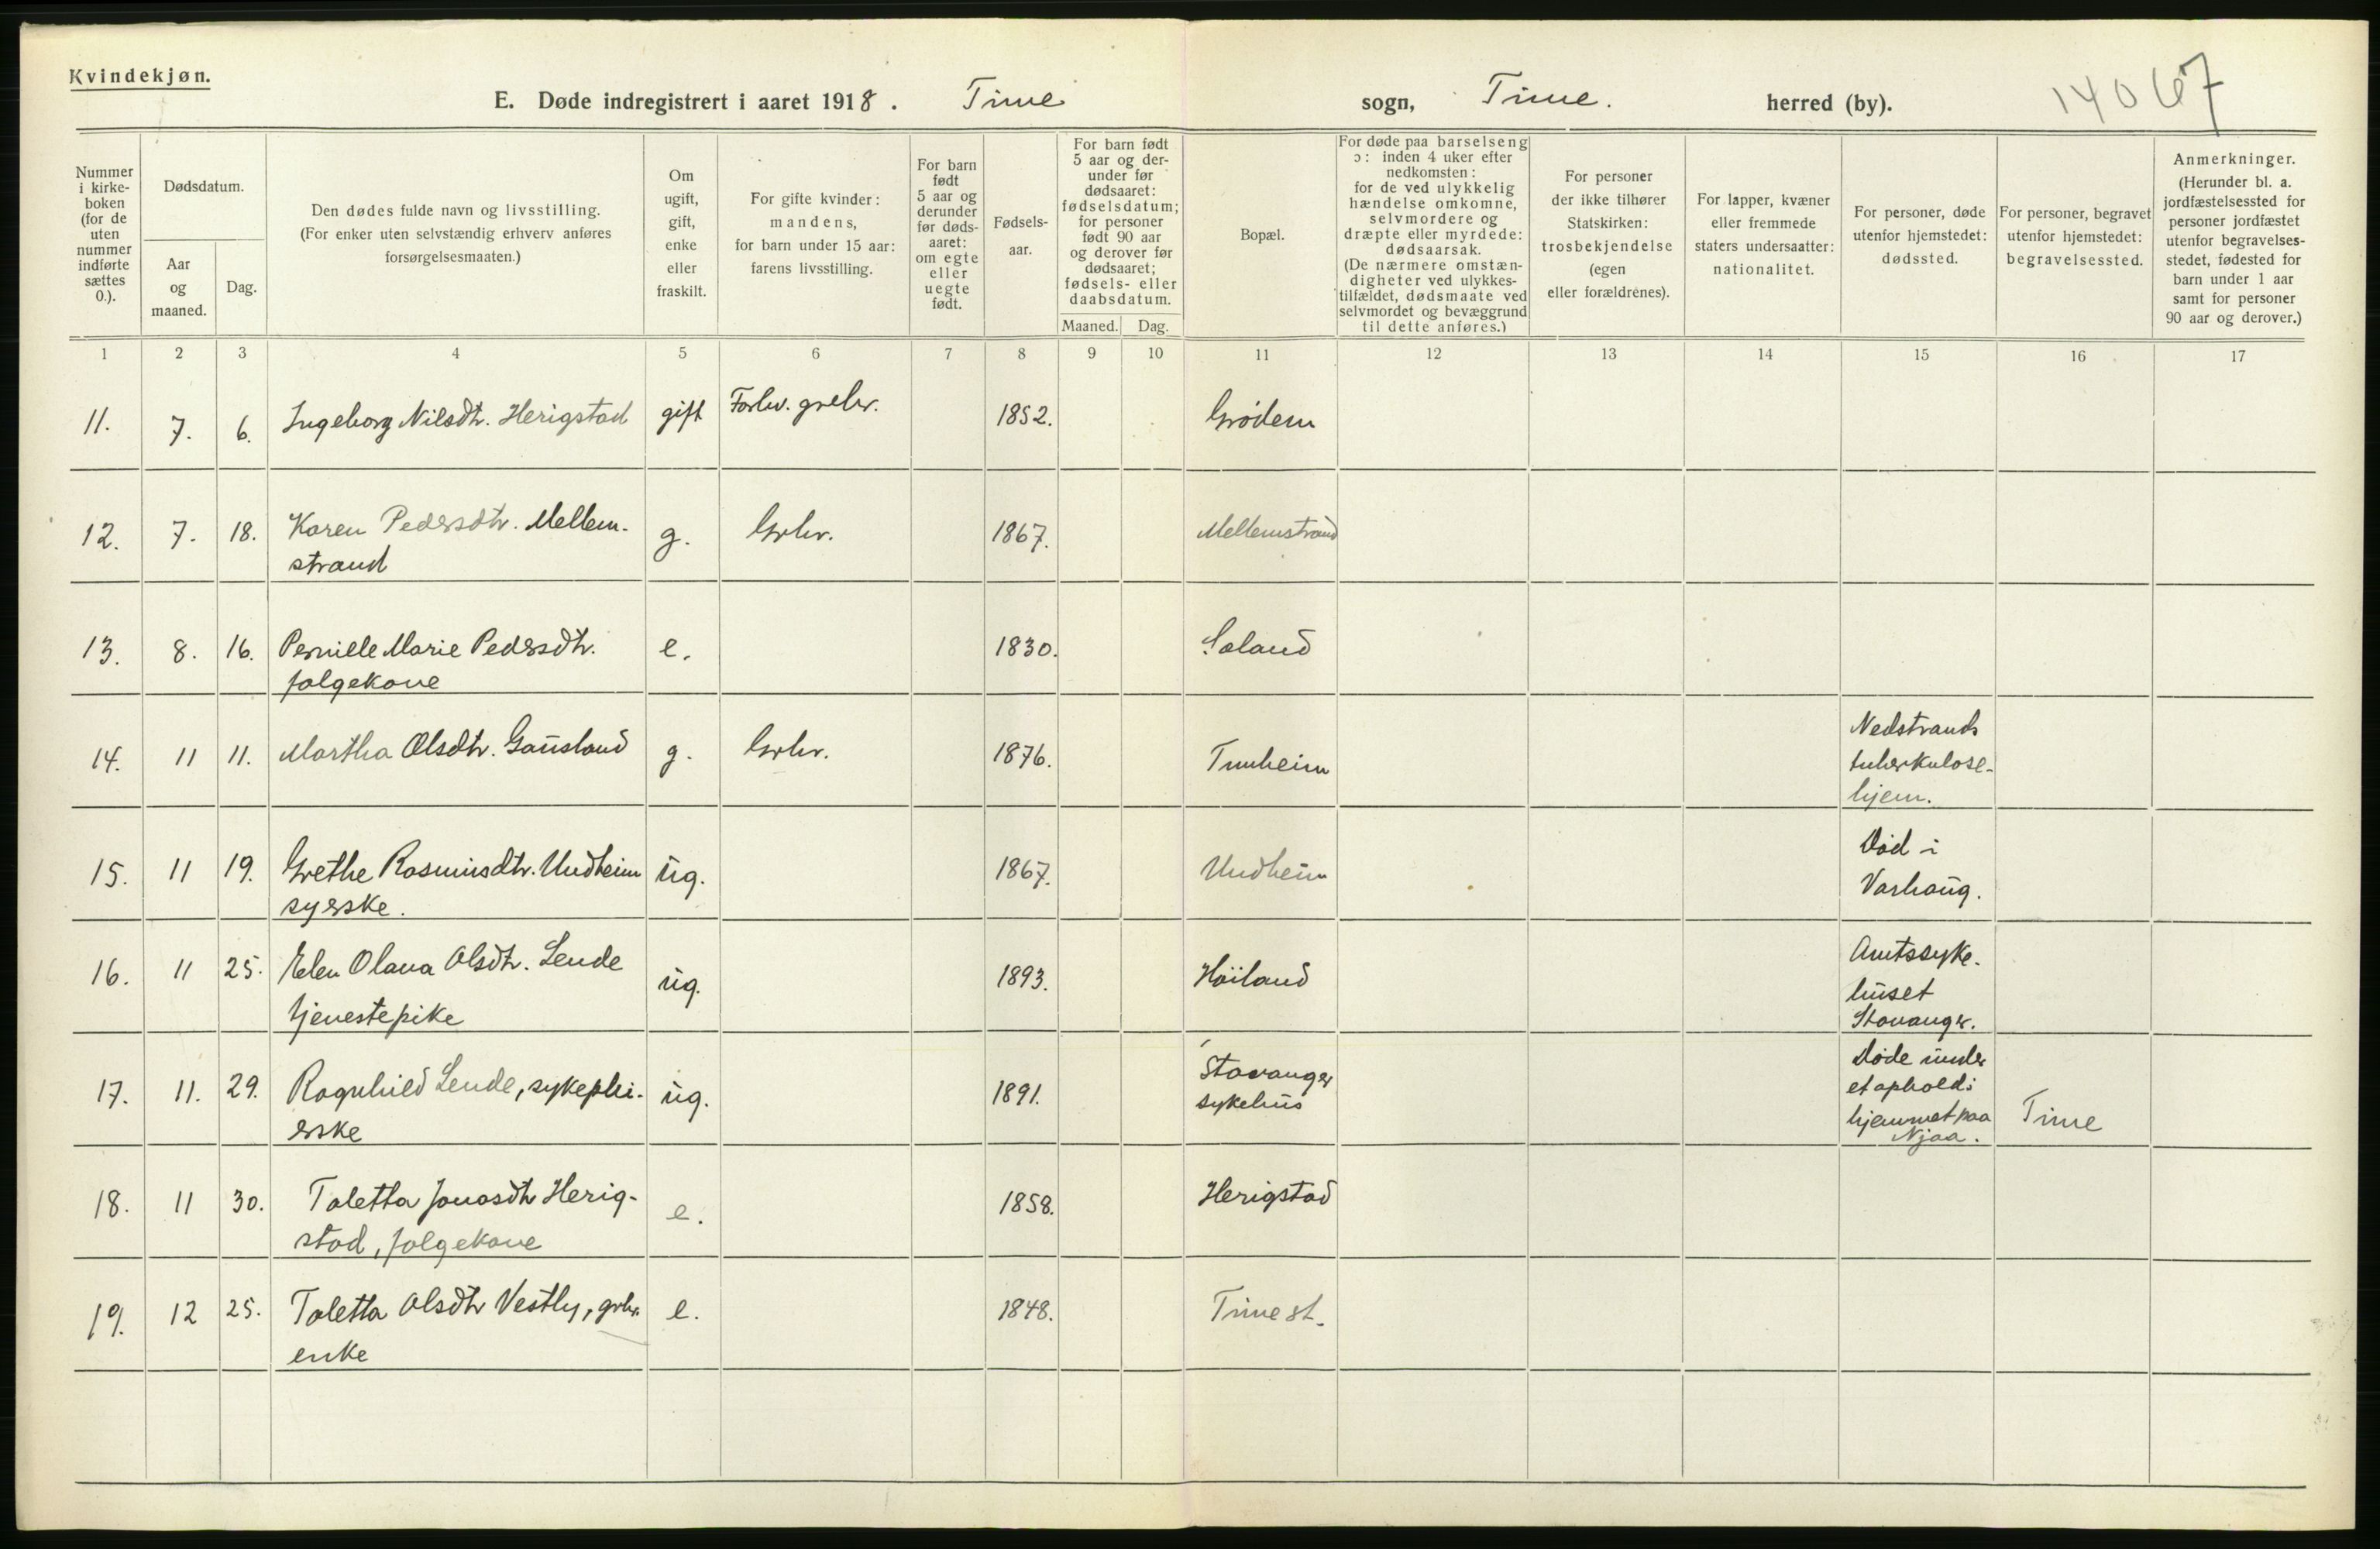 Kvindekjøn.
E. Døde indregistrert i aaret 1918. Time sogn, Time. herred (by).
14067
Nummer i kirke- boken (for de uten nummer indførte sættes 0.).
Dødsdatum.
Aar og maaned.
Dag.
Den dødes fulde navn og livsstilling.
(For enker uten selvstændig erhverv anføres
forsørgelsesmaaten.)
Om ugift, gift, enke eller fraskilt.
For gifte kvinder: mandens, for barn under 15 aar: farens livsstilling.
For barn født 5 aar og derunder før døds- aaret: om egte eller uegte født.
Fødsels- aar.
For barn født 5 aar og der- under før dødsaaret: fødselsdatum; for personer født 90 aar og derover før dødsaaret; fødsels- eller daabsdatum.
Maaned. Dag.
Bopæl.
For døde paa barselseng ɔ: inden 4 uker efter nedkomsten: for de ved ulykkelig hændelse omkomne, selvmordere og dræpte eller myrdede: dødsaarsak. (De nærmere omstæn- digheter ved ulykkes- tilfældet, dødsmaate ved selvmordet og bevæggrund til dette anføres.)
For personer der ikke tilhører Statskirken: trosbekjendelse (egen eller forældrenes).
For lapper, kvæner eller fremmede staters undersaatter: nationalitet.
For personer, døde utenfor hjemstedet: dødssted.
For personer, begravet utenfor hjemstedet: begravelsessted.
Anmerkninger. (Herunder bl. a. jordfæstelsessted for personer jordfæstet utenfor begravelses- stedet, fødested for barn under 1 aar samt for personer 90 aar og derover.)
1 2 3 4 5 6 7 8 9 10 11 12 13 14 15 16 17
11. 7. 6. Ingeborg Nilsdtr. Herigstad gift Forhv. grebr. 1852. Grödem
12. 7. 18. Karen Pedersdtr. Mellem- g. Grbr. 1867. Mellemstrand
strand
13. 8. 16. Pernille Marie Pedersdtr. e. 1830.
folgekone
14. 11 11. Martha Olsdtr. Gausland g. Grbr. 1876. Tunheim Nedstrands
tuberkulose-
hjem.
15. 11 19. Grethe Rasmusdtr. Undheim ug. 1867. Undheim Död i
syerske. Varhaug.
16. 11 25. Elen Olava Olsdtr. Lende ug. 1893. Höiland Amtssyke-
tjenestepike huset
Stavanger.
17. 11. 29. Ragnhild Lende, sykeplei- ug. 1891. Stavanger sykehus Döde under
erske et ophold i
hjemmet paa Time
Njaa.
18. 11 30. Taletta Jonasdtr Herig- e. 1858. Herigstad
stad, folgekone
19. 12 25. Taletta Olsdtr Vestly, grbr. e. 1848. Time st.
enke